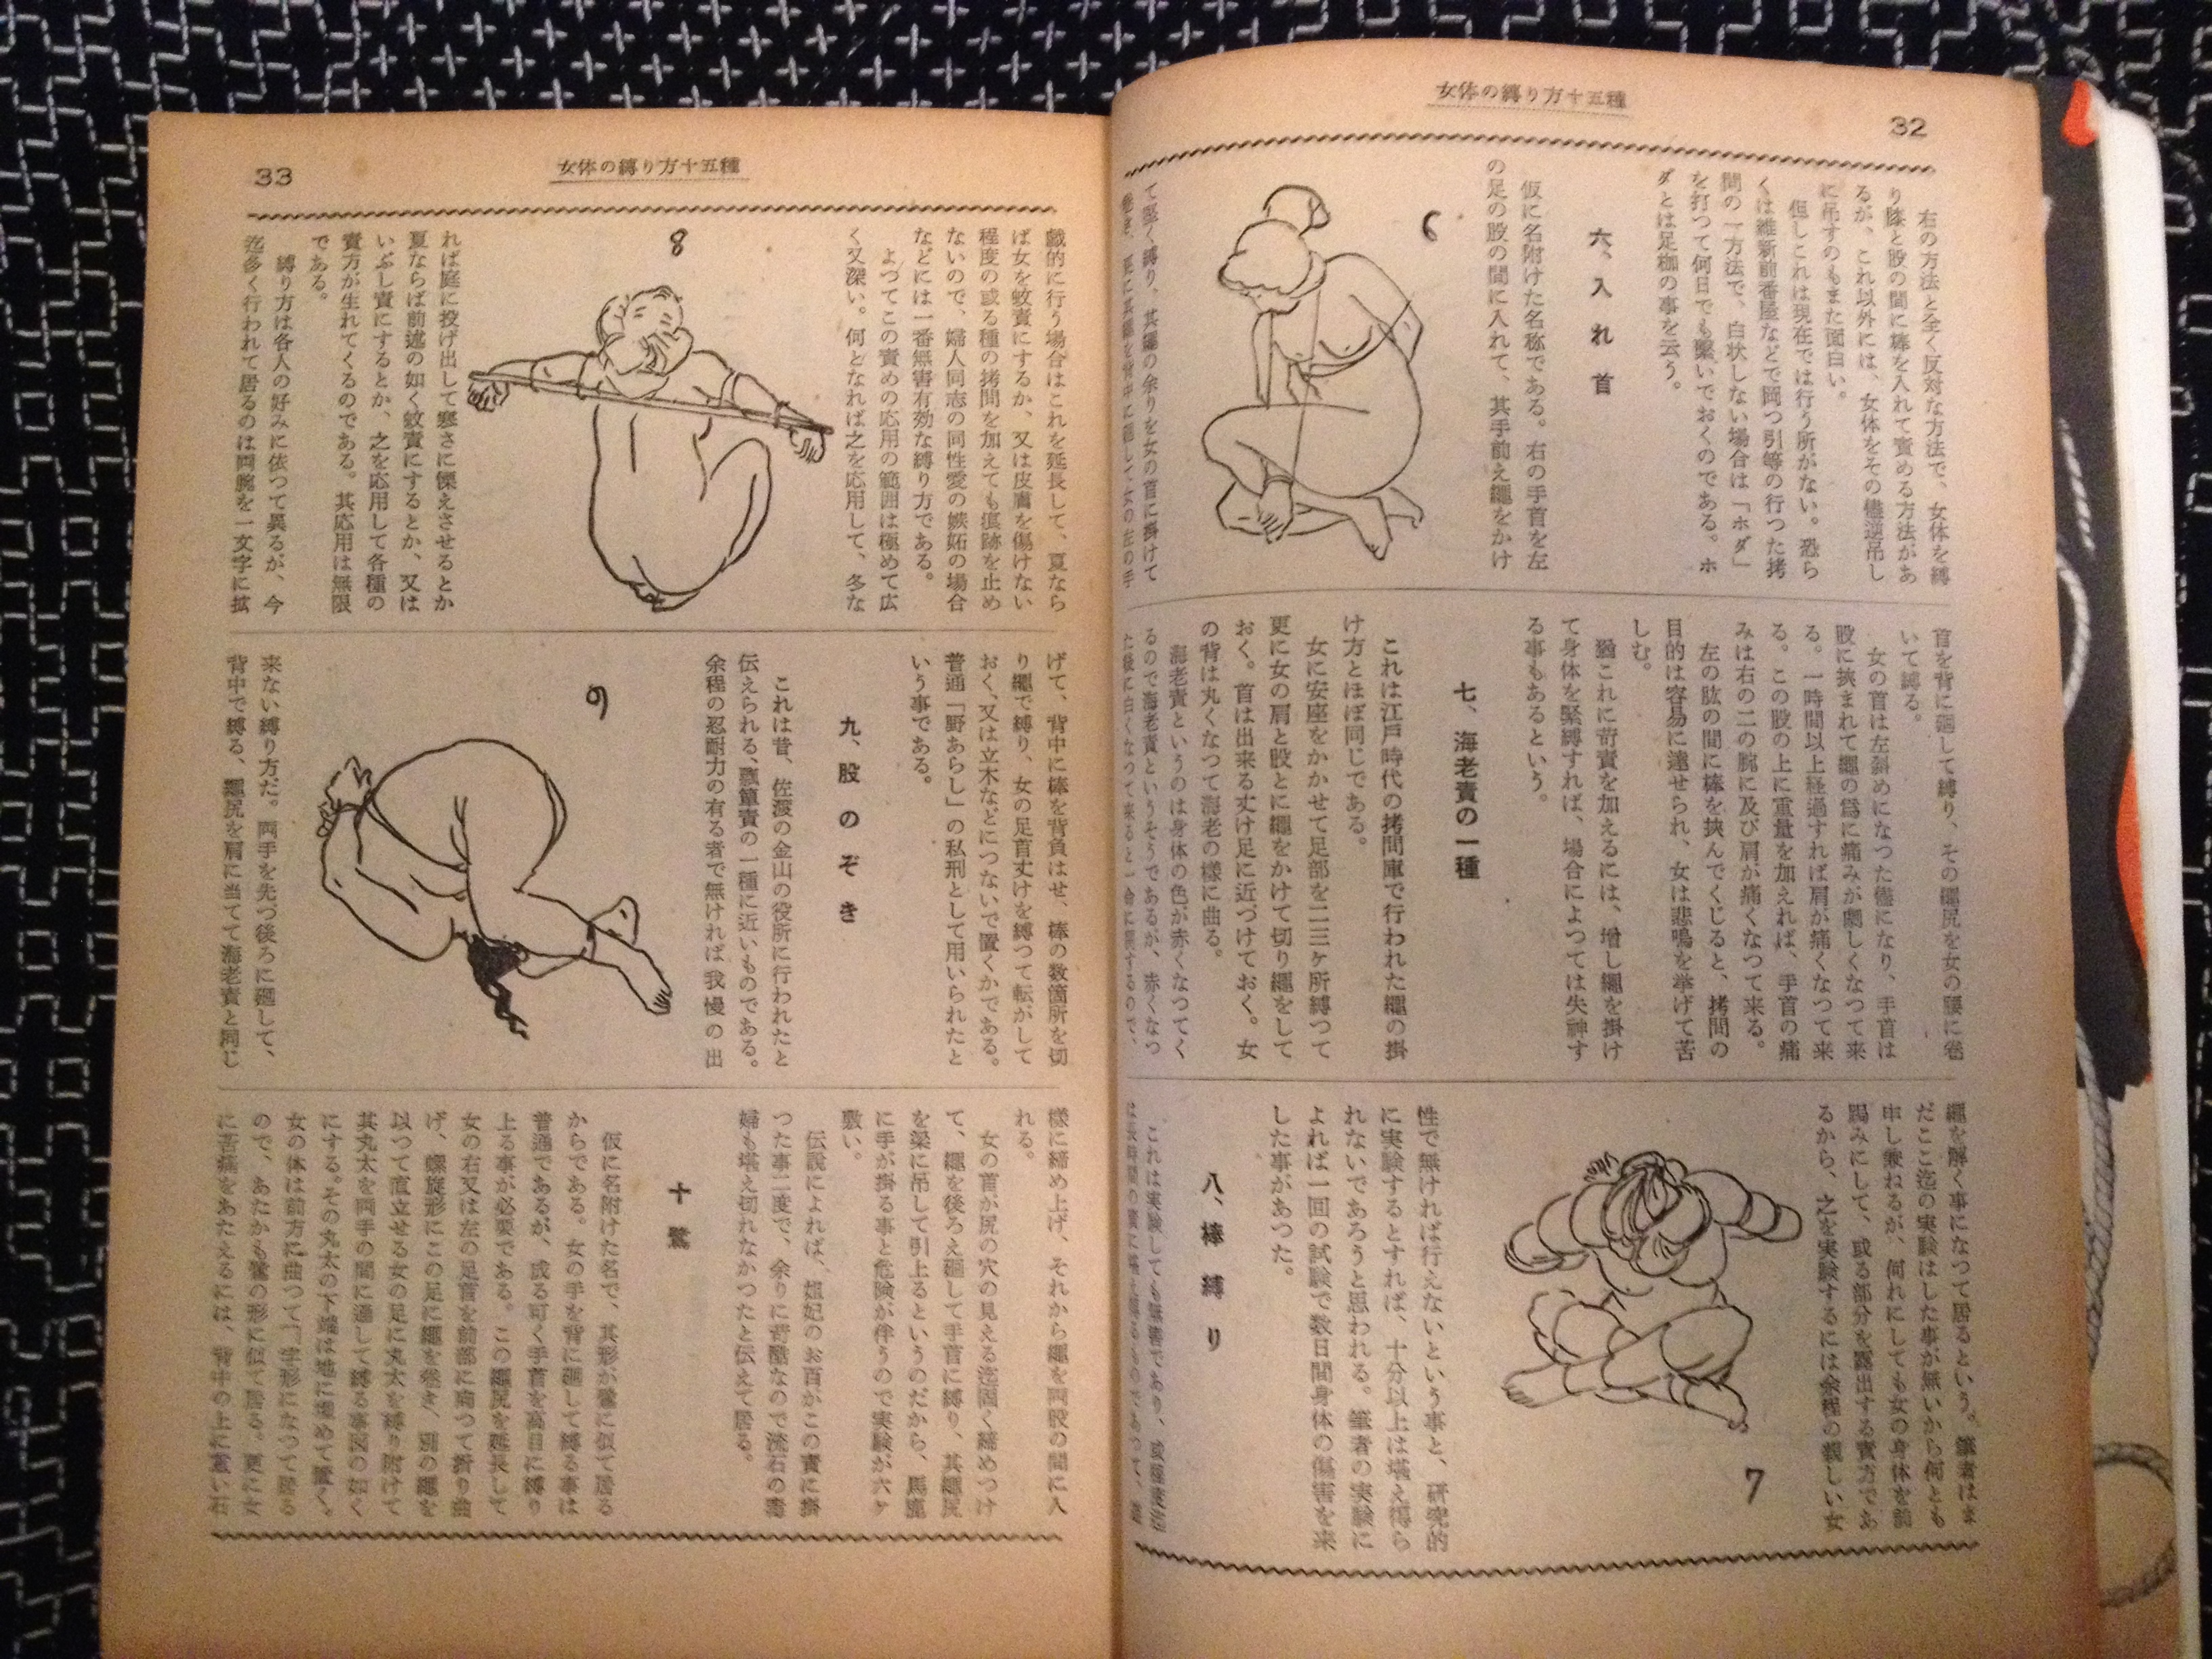 女体の縛り方十五種
32
右の方法と全く反対な方法で、女体を縛
り膝と股の間に棒を入れて責める方法があ
るが、これ以外には、女体をその儘逆吊し
に吊すのもまた面白い。
但しこれは現在では行う所がない。恐ら
くは維新前番屋などで岡つ引等の行つた拷
問の一方法で、白状しない場合は「ホダ」
を打つて何日でも繋いでおくのである。ホ
ダとは足枷の事を云う。
六、入れ首
仮に名附けた名称である。右の手首を左
の足の股の間に入れて、其手前え縄をかけ
6
て堅く縛り、其縄の余りを女の首に掛けて
首を背に廻して縛り、その縄尻を女の腰に巻
いて縛る。
女の首は左斜めになつた儘になり、手首は
股に挟まれて縄の爲に痛みが劇しくなつて来
る。一時間以上経過すれば肩が痛くなつて来
る。この股の上に重量を加えれば、手首の痛
みは右の二の腕に及び肩が痛くなつて来る。
左の肱の間に棒を挾んでくじると、拷問の
目的は容易に達せられ、女は悲鳴を挙げて苦
しむ。
猶これに苛責を加えるには、増し縄を掛け
て身体を緊縛すれば、場合によつては失神す
る事もあるという。
七、海老責の一種
これは江戸時代の拷問庫で行われた縄の掛
け方とほぼ同じである。
女に安座をかかせて足部を二三ヶ所縛つて
更に女の肩と股とに縄をかけて切り縄をして
おく。首は出来る丈け足に近づけておく。女
の背は丸くなつて海老の様に曲る。
海老責というのは身体の色が赤くなつてく
るので海老責というそうであるが、赤くなつ
縄を解く事になつて居るという。筆者はま
だここ迄の実験はした事が無いから何とも
申し兼ねるが、何れにしても女の身体を前
踞みにして、或る部分を露出する責方であ
るから、之を実験するには余程の親しい女
7
性で無ければ行えないという事と、研究的
に実験するとすれば、十分以上は堪え得ら
れないであろうと思われる。筆者の実験に
よれば一回の試験で数日間身体の傷害を来
した事があつた。
八、棒縛り
女体の縛り方十五種
33
戯的に行う場合はこれを延長して、夏なら
ば女を蚊責にするか、又は皮膚を傷けない
程度の或る種の拷問を加えても痕跡を止め
ないので、婦人同志の同性愛の嫉妬の場合
などには一番無害有効な縛り方である。
よつてこの責めの応用の範囲は極めて広
く又深い。何となれば之を応用して、冬な
8
れば庭に投げ出して寒さに慄えさせるとか
夏ならば前述の如く蚊責にするとか、又は
いぶし責にするとか、之を応用して各種の
責方が生れてくるのである。其応用は無限
である。
縛り方は各人の好みに依つて異るが、今
迄多く行われて居るのは両腕を一文字に拡
げて、背中に棒を背負はせ、棒の数箇所を切
り縄で縛り、女の足首丈けを縛つて転がして
おく、又は立木などにつないで置くかである。
普通「野あらし」の私刑として用いられたと
いう事である。
九、股のぞき
これは昔、佐渡の金山の役所に行われたと
伝えられる、瓢簞責の一種に近いものである。
余程の忍耐力の有る者で無ければ我慢の出
9
来ない縛り方だ。両手を先づ後ろに廻して、
背中で縛る、縄尻を肩に当てて海老責と同じ
様に締め上げ、それから縄を両股の間に入
れる。
女の首が尻の穴の見える迄固く締めつけ
て、縄を後ろえ廻して手首に縛り、其縄尻
を梁に吊して引上るというのだから、馬鹿
に手が掛る事と危険が伴うので実験が六ヶ
敷い。
伝説によれば、妲妃のお百がこの責に掛
つた事二度で、余りに苛酷なので流石の毒
婦も堪え切れなかつたと伝えて居る。
十 鷺
仮に名附けた名で、其形が鷺に似て居る
からである。女の手を背に廻して縛る事は
普通であるが、成る可く手首を高目に縛り
上る事が必要である。この縄尻を延長して
女の右又は左の足首を前部に向つて折り曲
げ、螺旋形にこの足に縄を巻き、別の縄を
以つて直立せる女の足に丸太を縛り附けて
其丸太を両手の間に通して縛る事図の如く
にする。その丸太の下端は地に埋めて置く。
女の体は前方に曲つて
ので、あたかも鷺の形に似て居る。更に女
に苦痛をあたえるには、背中の上に重い石